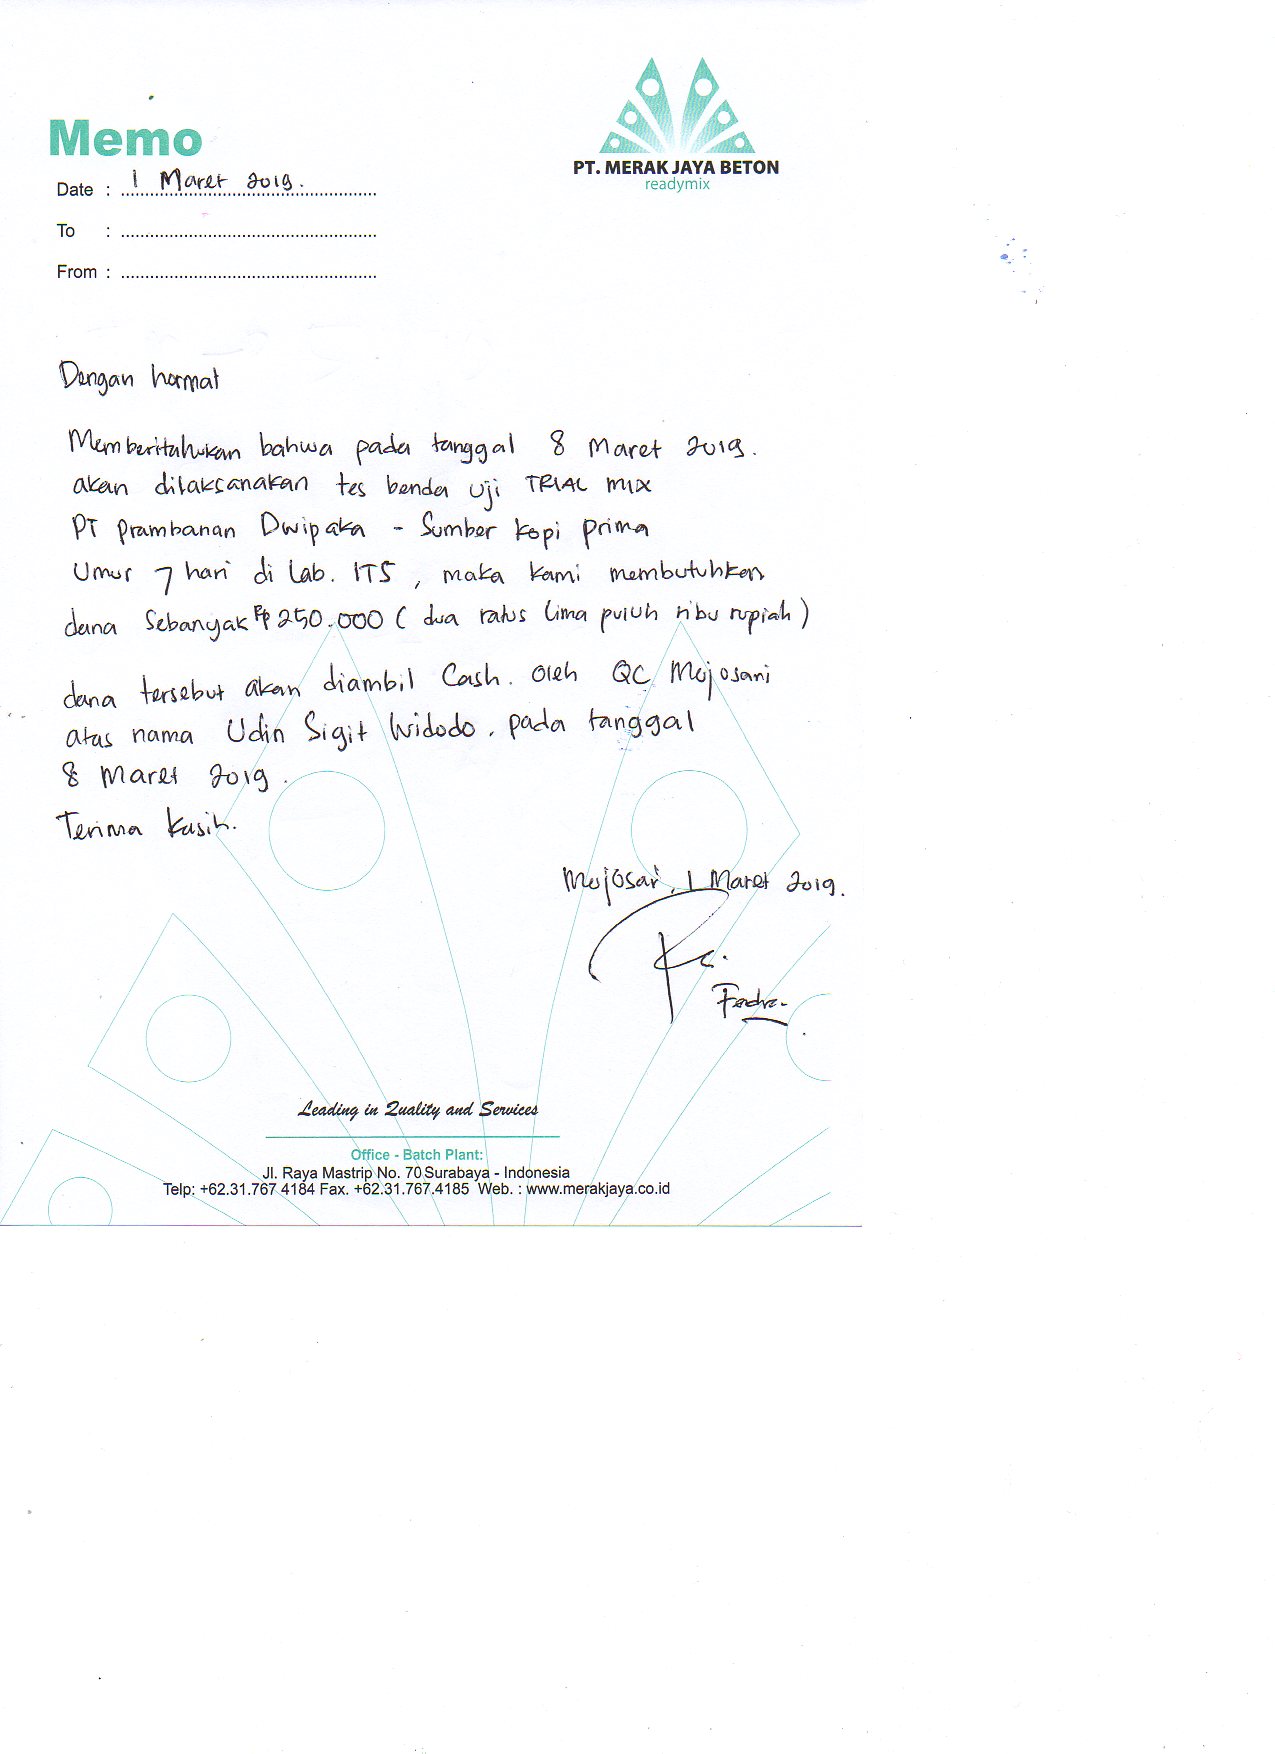 Memo
PT. MERAK JAYA BETON
readymix
Date : 1 Maret 2019.
To :
From :
Dengan hormat
Memberitahukan bahwa pada tanggal 8 Maret 2019.
akan dilaksanakan tes benda uji TRIAL MIX
PT Prambanan Dwipaka - Sumber kopi prima
Umur 7 hari di Lab. ITS , maka kami membutuhkan
dana Sebanyak Rp 250.000 ( dua ratus lima puluh ribu rupiah )
dana tersebut akan diambil Cash. oleh QC Mojosari
atas nama Udin Sigit Widodo. pada tanggal
8 Maret 2019.
Terima Kasih.
Mojosari, 1 Maret 2019.
Leading in Quality and Services
Office - Batch Plant:
Jl. Raya Mastrip No. 70 Surabaya - Indonesia
Telp: +62.31.767 4184 Fax. +62.31.767.4185 Web. : www.merakjaya.co.id